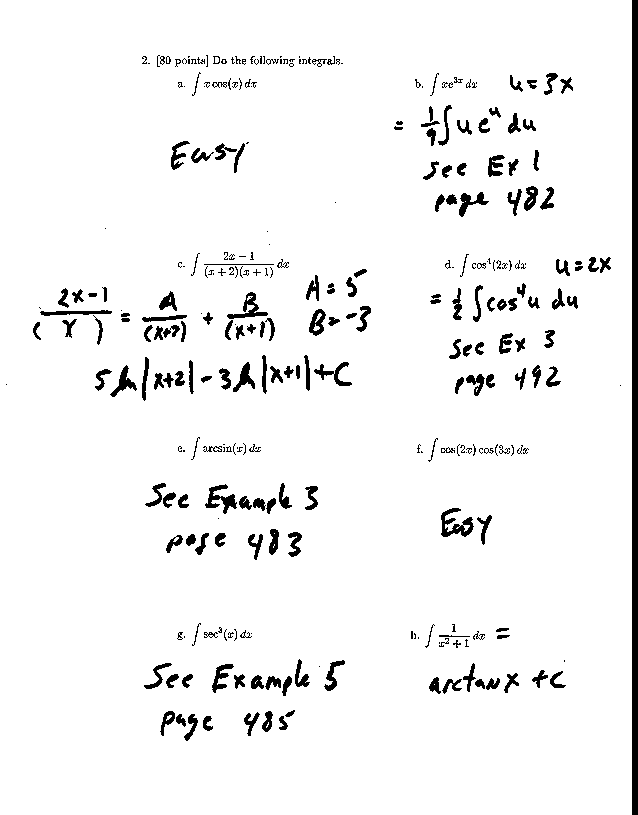 2. [80 points] Do the following integrals.
a. ∫ x cos(x) dx
Easy
b. ∫ xe^{3x} dx u = 3x
= 1/9 ∫ u e^u du
See Ex 1
page 482
c. ∫ (2x − 1)/((x + 2)(x + 1)) dx
(2x-1)/( ) = A/(x+2) + B/(x+1) A = 5
B = -3
5 ln|x+2| - 3 ln|x+1| + C
d. ∫ cos^4(2x) dx u = 2x
= 1/2 ∫ cos^4 u du
See Ex 3
page 492
e. ∫ arcsin(x) dx
See Example 3
page 483
f. ∫ cos(2x) cos(3x) dx
Easy
g. ∫ sec^3(x) dx
See Example 5
page 485
h. ∫ 1/(x^2 + 1) dx =
arctan x + C